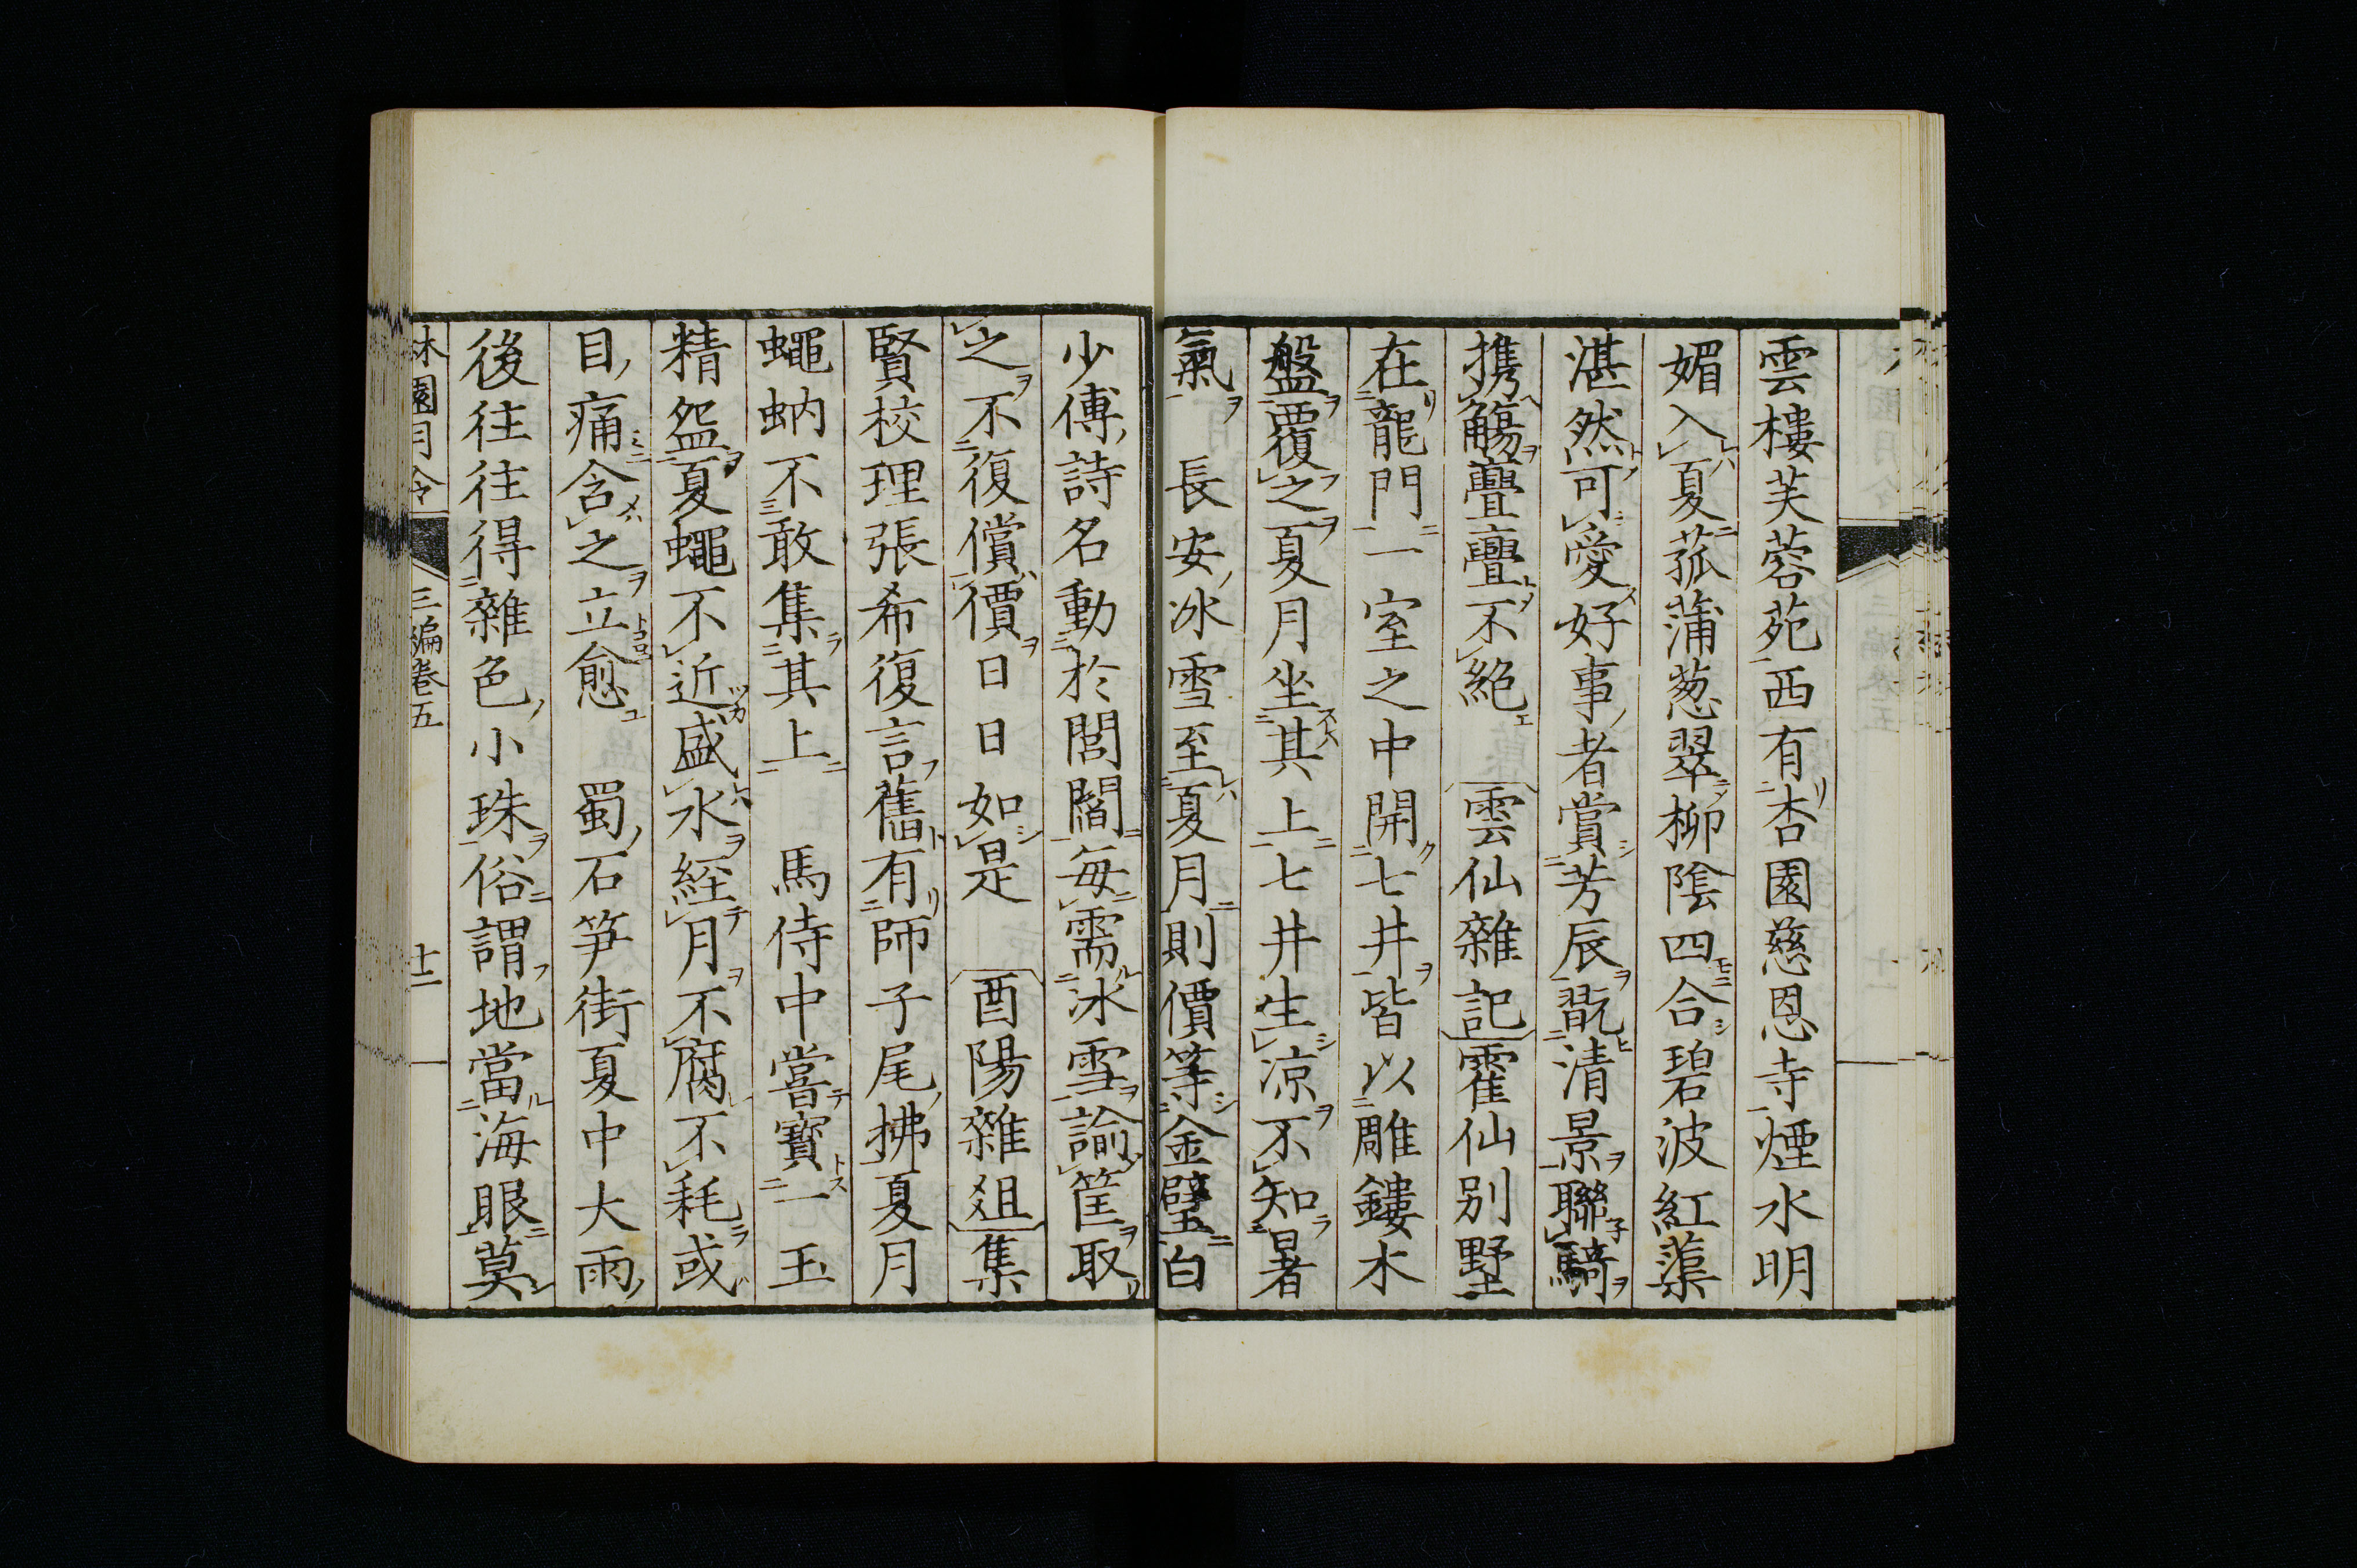 雲樓芙蓉苑西有杏園慈恩寺煙水明
媚入夏菰蒲葱翠柳陰四合碧波紅蕖
湛然可愛好事者賞芳辰翫清景聯騎
携觴亹亹不絕 雲仙雜記 霍仙别墅
在龍門一室之中開七井皆以雕鏤木
盤覆之夏月坐其上七井生凉不知暑
氣 長安冰雪至夏月則價等金璧白
少傅詩名動於閭閻每需冰雪諭筐取
之不復償價日日如是 酉陽雜俎 集
賢校理張希復言舊有師子尾拂夏月
蠅蚋不敢集其上 馬侍中嘗寳一玉
精盌夏蠅不近盛水経月不腐不耗或
目痛含之立愈 蜀石笋街夏中大雨
後往往得雜色小珠俗謂地當海眼莫
林園月令 三編卷五 十二